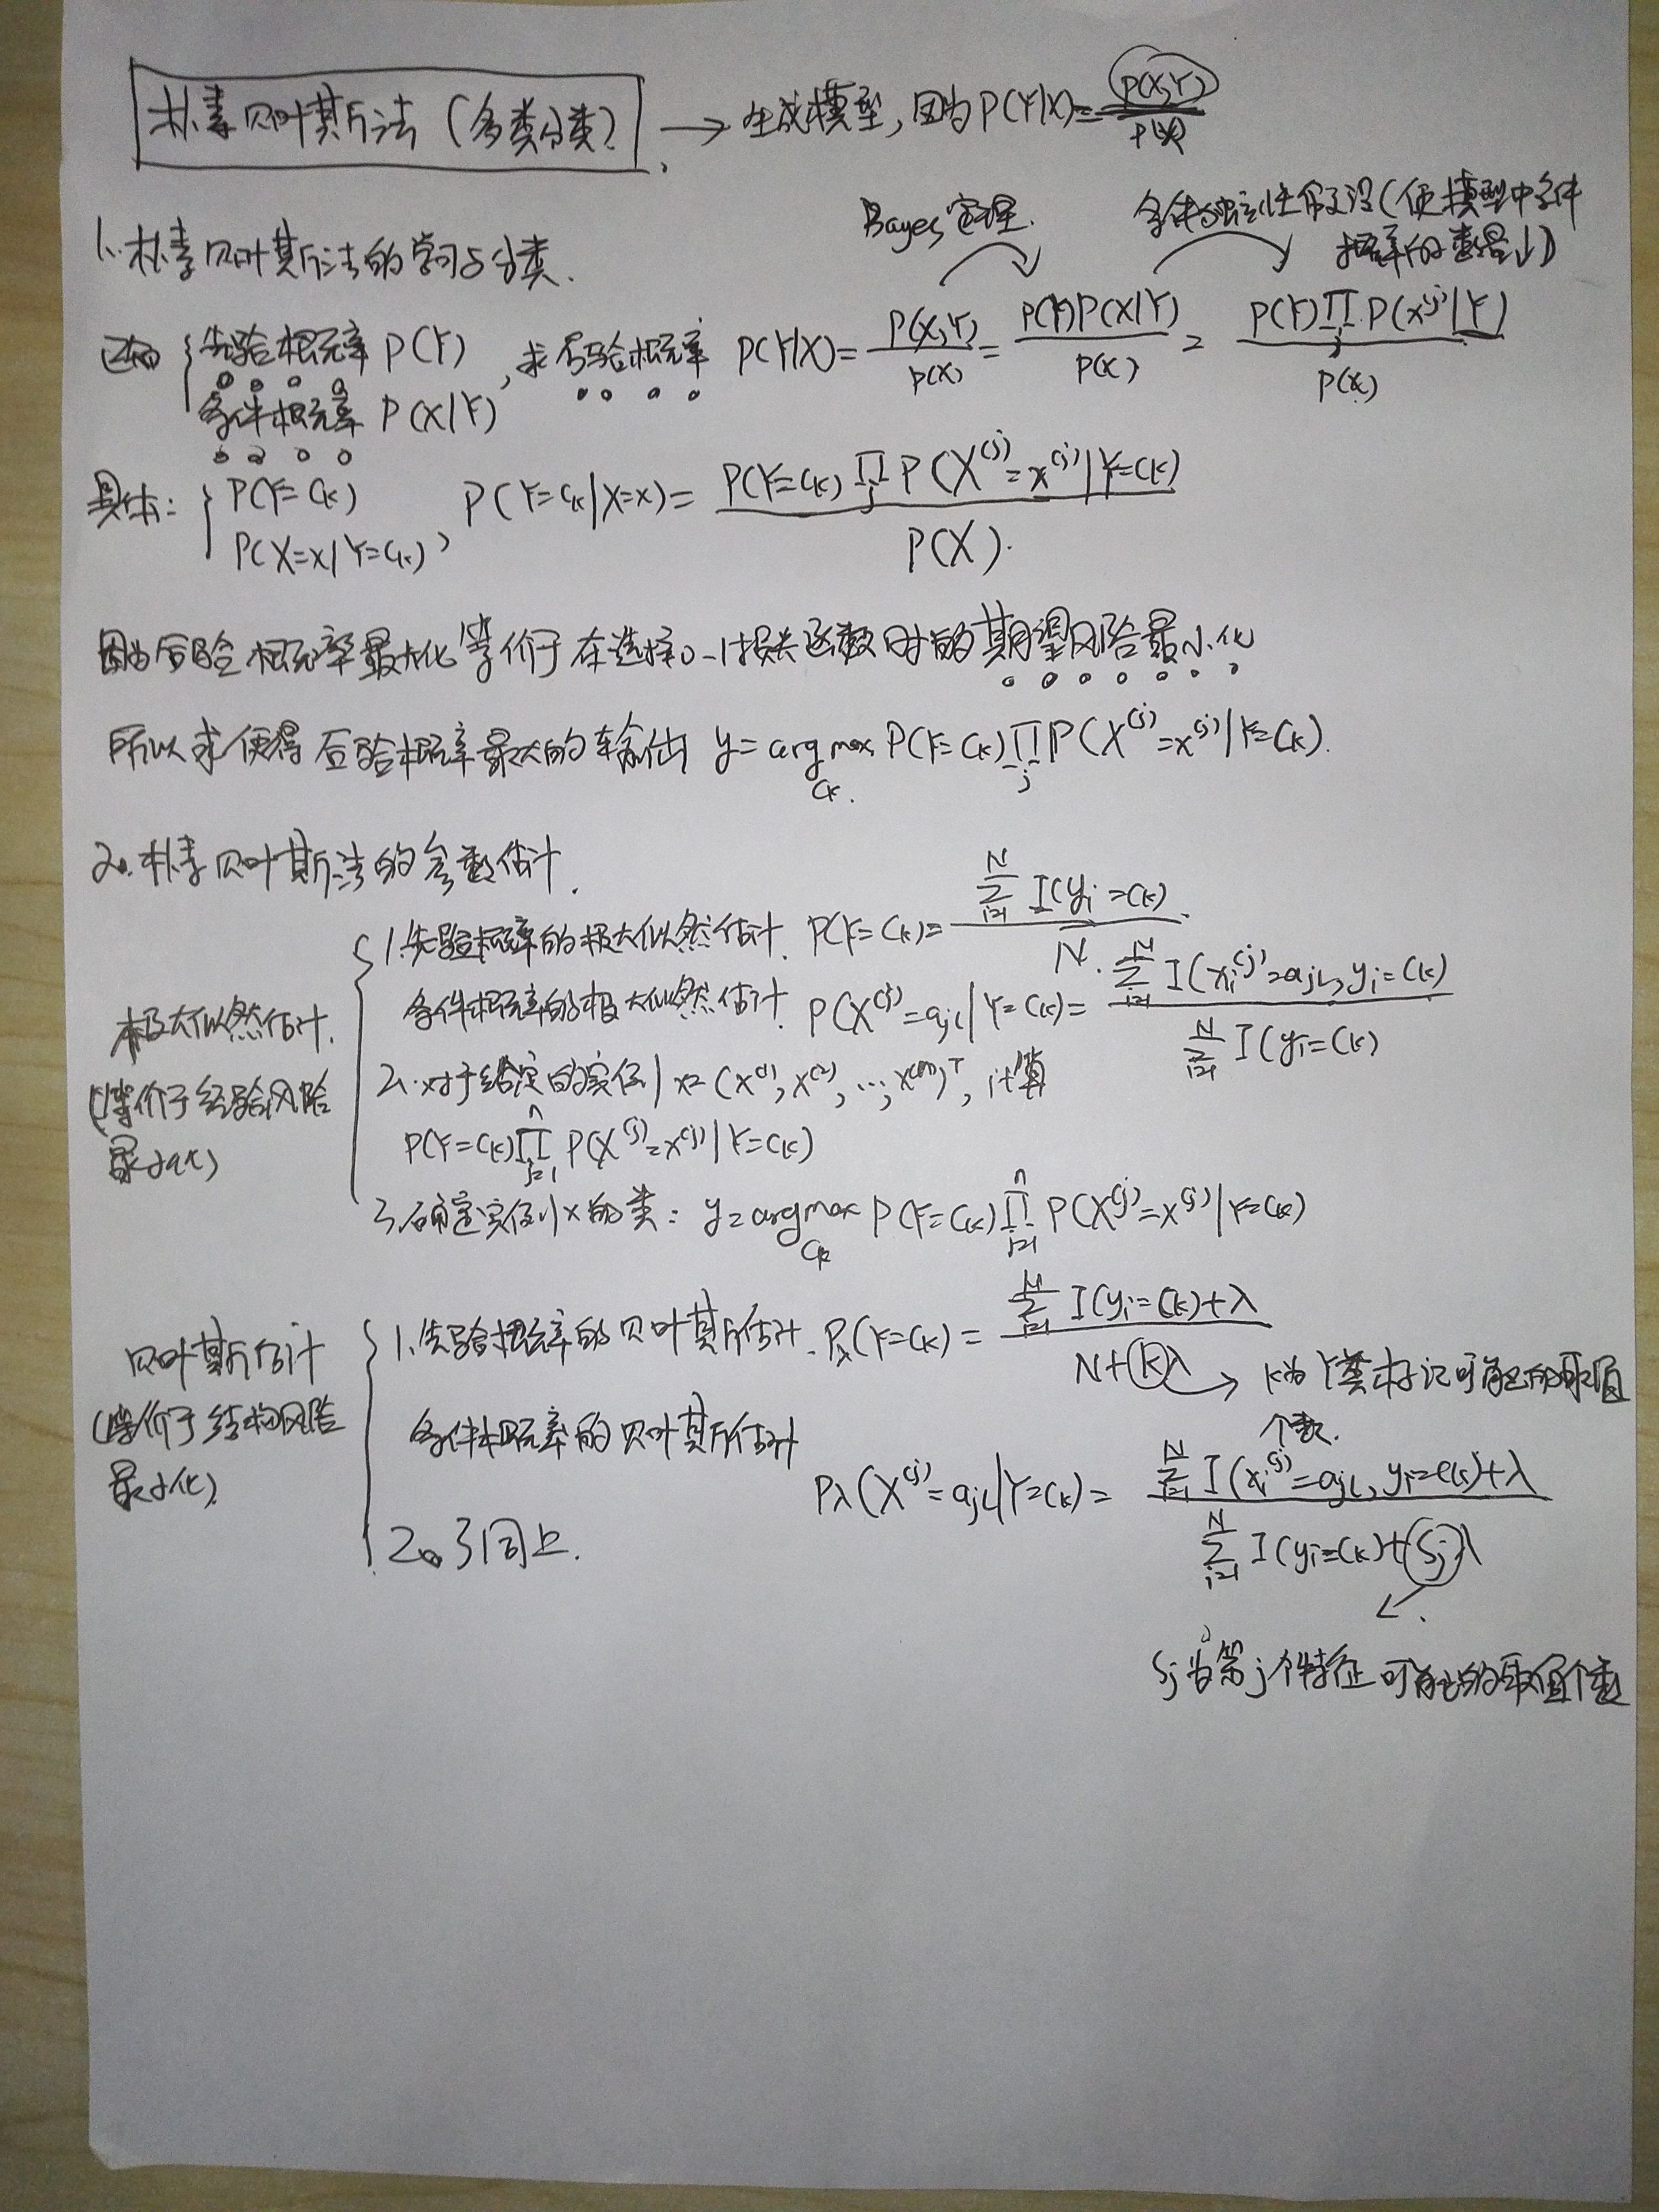 朴素贝叶斯法（多类分类） → 生成模型，因为P(Y|X)=P(X,Y)/P(X)
Bayes定理. 条件独立性假设(使模型中条件
概率的数量↓)
1. 朴素贝叶斯法的学习与分类.
已知 { 先验概率 P(Y) ，求后验概率 P(Y|X)= P(X,Y)/P(X) = P(Y)P(X|Y)/P(X) = P(Y)∏_j P(x^(j)|Y)/P(X)
条件概率 P(X|Y)
具体： { P(Y=Ck)
P(X=x|Y=Ck) , P(Y=Ck|X=x)= P(Y=Ck)∏_j P(X^(j)=x^(j)|Y=Ck)/P(X).
因为后验概率最大化等价于在选择0-1损失函数时的期望风险最小化
所以求使得后验概率最大的输出 y=argmax_Ck P(Y=Ck)∏_j P(X^(j)=x^(j)|Y=Ck).
2. 朴素贝叶斯法的参数估计.
极大似然估计.
(等价于经验风险
最小化)
1. 先验概率的极大似然估计. P(Y=Ck)= ∑_{i=1}^N I(yi=Ck)/N.
条件概率的极大似然估计. P(X^(j)=ajl|Y=Ck)= ∑_{i=1}^N I(xi^(j)=ajl, yi=Ck)/∑_{i=1}^N I(yi=Ck)
2. 对于给定的实例 x=(x^(1), x^(2), …, x^(n))^T, 计算
P(Y=Ck)∏_{j=1}^n P(X^(j)=x^(j)|Y=Ck)
3. 确定实例x的类: y=argmax_Ck P(Y=Ck)∏_{j=1}^n P(X^(j)=x^(j)|Y=Ck)
贝叶斯估计
(等价于结构风险
最小化)
1. 先验概率的贝叶斯估计. Pλ(Y=Ck)= (∑_{i=1}^N I(yi=Ck)+λ)/(N+Kλ) → K为Y类标记可能的取值
个数.
条件概率的贝叶斯估计
Pλ(X^(j)=ajl|Y=Ck)= (∑_{i=1}^N I(xi^(j)=ajl, yi=Ck)+λ)/(∑_{i=1}^N I(yi=Ck)+Sjλ)
2。3同上.
Sj为第j个特征可能的取值个数